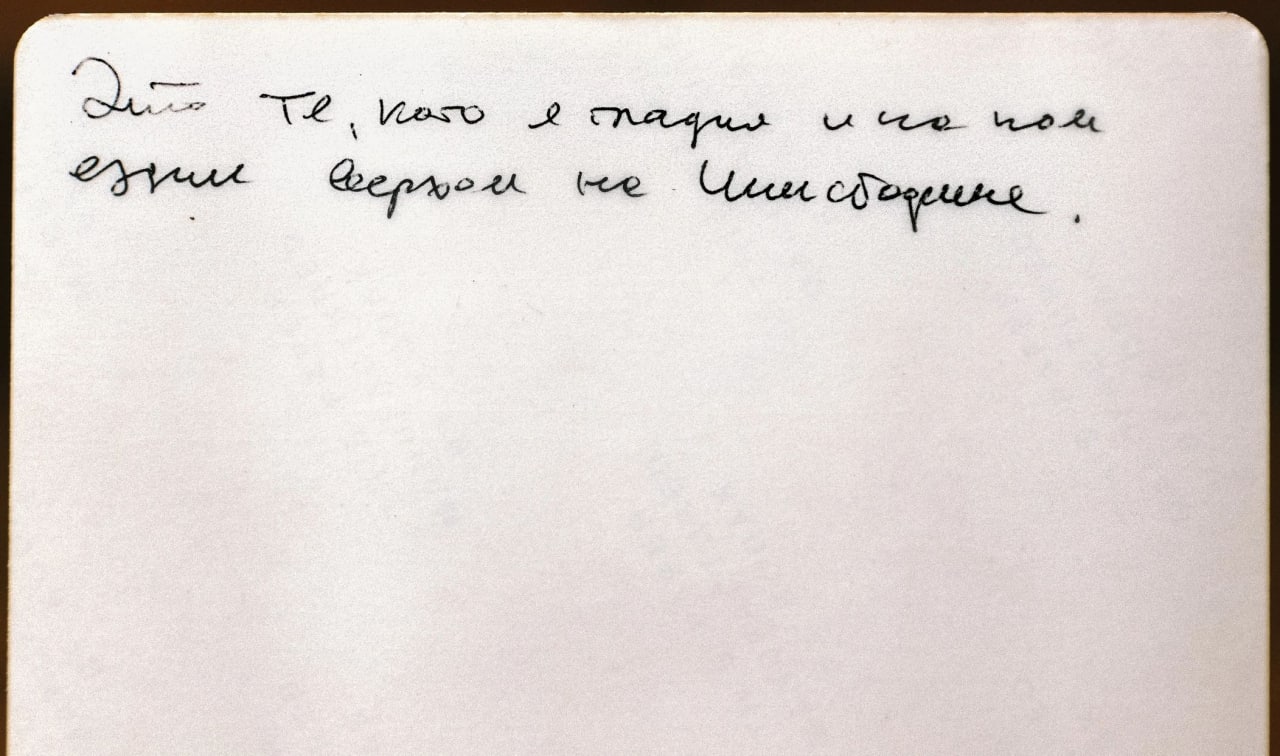 Это те, кого я гладил и на ком
ездил верхом на